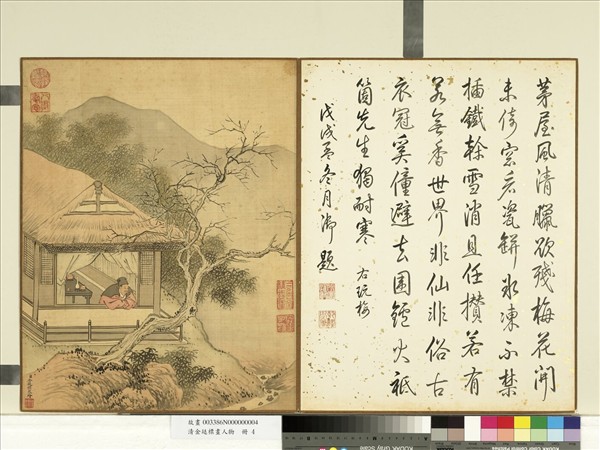 茅屋風清臘欲殘梅花開
未倚窓看瓷缾氷凍不禁
插鐵榦雪消且任攢若有
若無香世界非仙非俗古
衣冠奚僮避去圍鑪火祗
箇先生獨耐寒 右玩梅
戊戌孟冬月御題
故畫 003386N000000004
清金廷標畫人物 冊 4